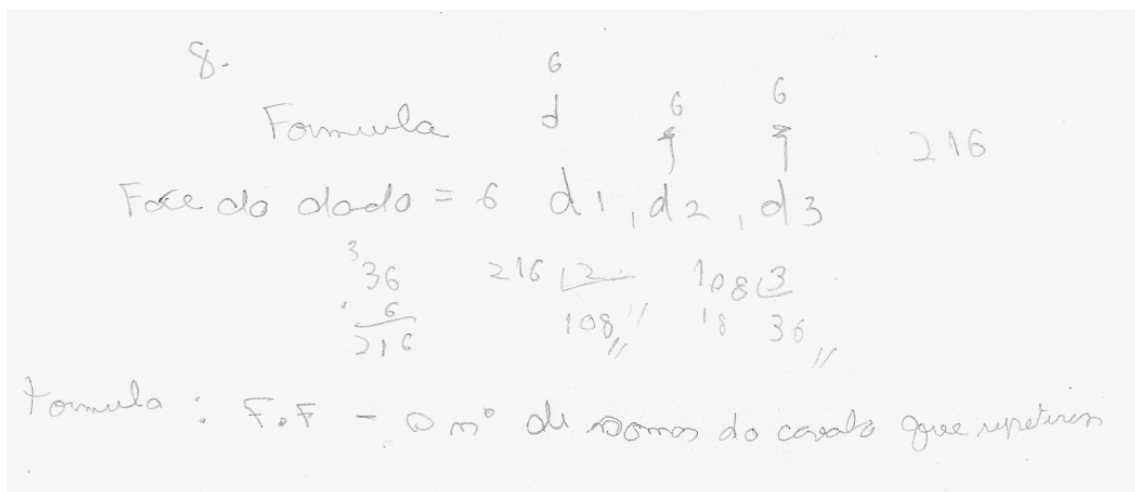 8.
6
6 6
Formula d 216
Face do dado = 6 d1, d2, d3
3
36 216 2 108 3
6 108 18 36
216
Formula : F.F - o nº de somas do cavalo que repetirem